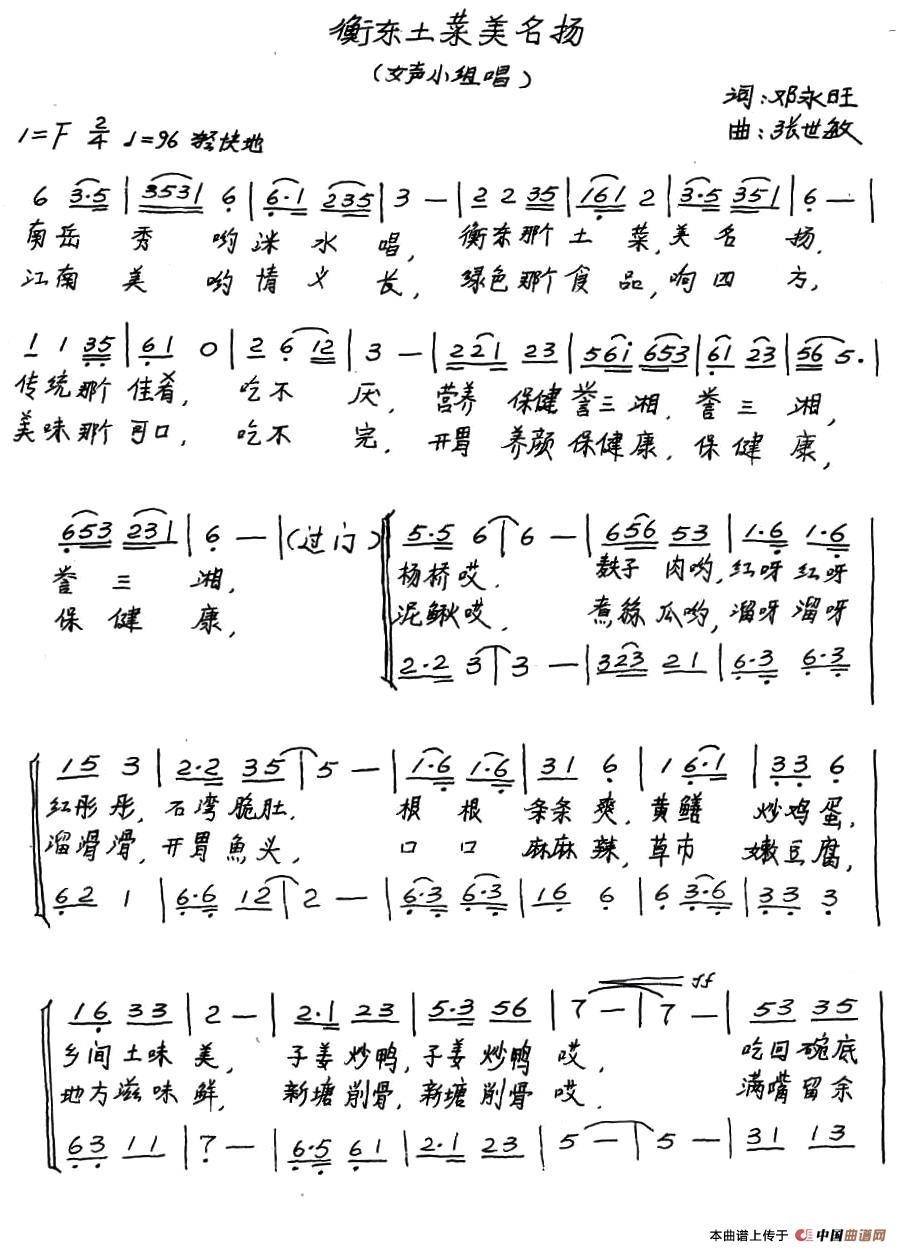 衡东土菜美名扬
（女声小组唱）
词：邓永旺
1=F 2/4 ♩=96 轻快地
曲：张世敏
6 3·5 | 3531 6 | 6·1 235 | 3 — | 2 2 35 | 161 2 | 3·5 351 | 6 — |
南岳 秀 哟 洣 水 唱， 衡东那个 土 菜，美 名 扬，
江南 美 哟 情 义 长， 绿色那个 食 品，响 四 方，
1 1 35 | 61 0 | 2 6 12 | 3 — | 221 23 | 561 653 | 61 23 | 56 5· |
传统那个 佳肴， 吃不 厌， 营养 保健 誉三湘，誉 三 湘，
美味那个 可口， 吃不 完， 开胃 养颜 保健康，保 健 康，
653 231 | 6 — | （过门） 5·5 6 | 6 — | 656 53 | 1·6 1·6
誉 三 湘， 杨桥哎． 麸子 肉哟，红呀 红呀
保 健 康， 泥鳅哎． 煮丝 瓜哟，溜呀 溜呀
2·2 3 | 3 — | 323 21 | 6·3 6·3
15 3 | 2·2 35 | 5 — | 1·6 1·6 | 31 6 | 1 6·1 | 33 6
红彤彤，石湾脆肚． 根 根 条条 爽，黄鳝 炒鸡蛋，
溜滑滑，开胃魚头， 口 口 麻麻 辣，草市 嫩豆腐，
62 1 | 6·6 12 | 2 — | 6·3 6·3 | 16 6 | 6 3·6 | 33 3
16 33 | 2 — | 2·1 23 | 5·3 56 | 7 — | 7 — | 53 35
ff
乡间土味 美， 子姜炒鸭，子姜炒鸭 哎， 吃回碗底
地方滋味 鲜， 新塘削骨，新塘削骨 哎． 满嘴留余
63 11 | 7 — | 6·5 61 | 2·1 23 | 5 — | 5 — | 31 13
本曲谱上传于 中国曲谱网